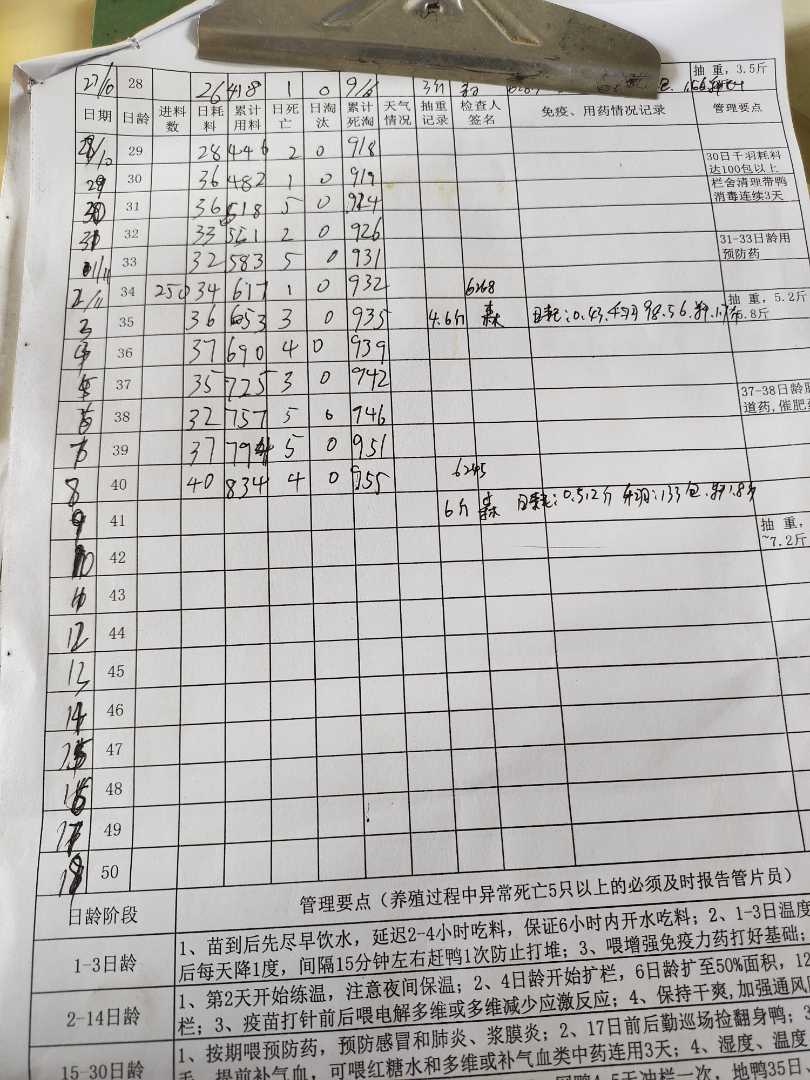 27/10 28 26 418 1 0 916 3斤 抽重，3.5斤
日期 日龄 进料数 日耗料 累计用料 日死亡 日淘汰 累计死淘 天气情况 抽重记录 检查人签名 免疫、用药情况记录 管理要点
28/10 29 28 446 2 0 918
29 30 36 482 1 0 919 30日千羽耗料达100包以上 栏舍清理带鸭消毒连续3天
30 31 36 518 5 0 924
31 32 33 551 2 0 926
1/11 33 32 583 5 0 931 31-33日龄用预防药
2/11 34 250 34 617 1 0 932 6268
3 35 36 653 3 0 935 4.6斤 森 日耗:0.43. 98.56. 抽重，5.2斤 5.8斤
4 36 37 690 4 0 939
5 37 35 725 3 0 942
6 38 32 757 5 0 946 37-38日龄 道药,催肥
7 39 37 794 5 0 951
8 40 40 834 4 0 955 6245
9 41 6斤 森 日耗:0.512斤 133包. 1.8斤
10 42 抽重， ~7.2斤
11 43
12 44
13 45
14 46
15 47
16 48
17 49
18 50
日龄阶段 管理要点（养殖过程中异常死亡5只以上的必须及时报告管片员）
1-3日龄 1、苗到后先尽早饮水，延迟2-4小时吃料，保证6小时内开水吃料；2、1-3日温度
后每天降1度，间隔15分钟左右赶鸭1次防止打堆；3、喂增强免疫力药打好基础；
2-14日龄 1、第2天开始练温，注意夜间保温；2、4日龄开始扩栏，6日龄扩至50%面积，12
栏；3、疫苗打针前后喂电解多维或多维减少应激反应；4、保持干爽,加强通风
15-30日龄 1、按期喂预防药，预防感冒和肺炎、浆膜炎；2、17日前后勤巡场捡翻身鸭；3
毛，提前补气血，可喂红糖水和多维或补气血类中药连用3天；4、湿度、温度
4-5天冲栏一次，地鸭35日